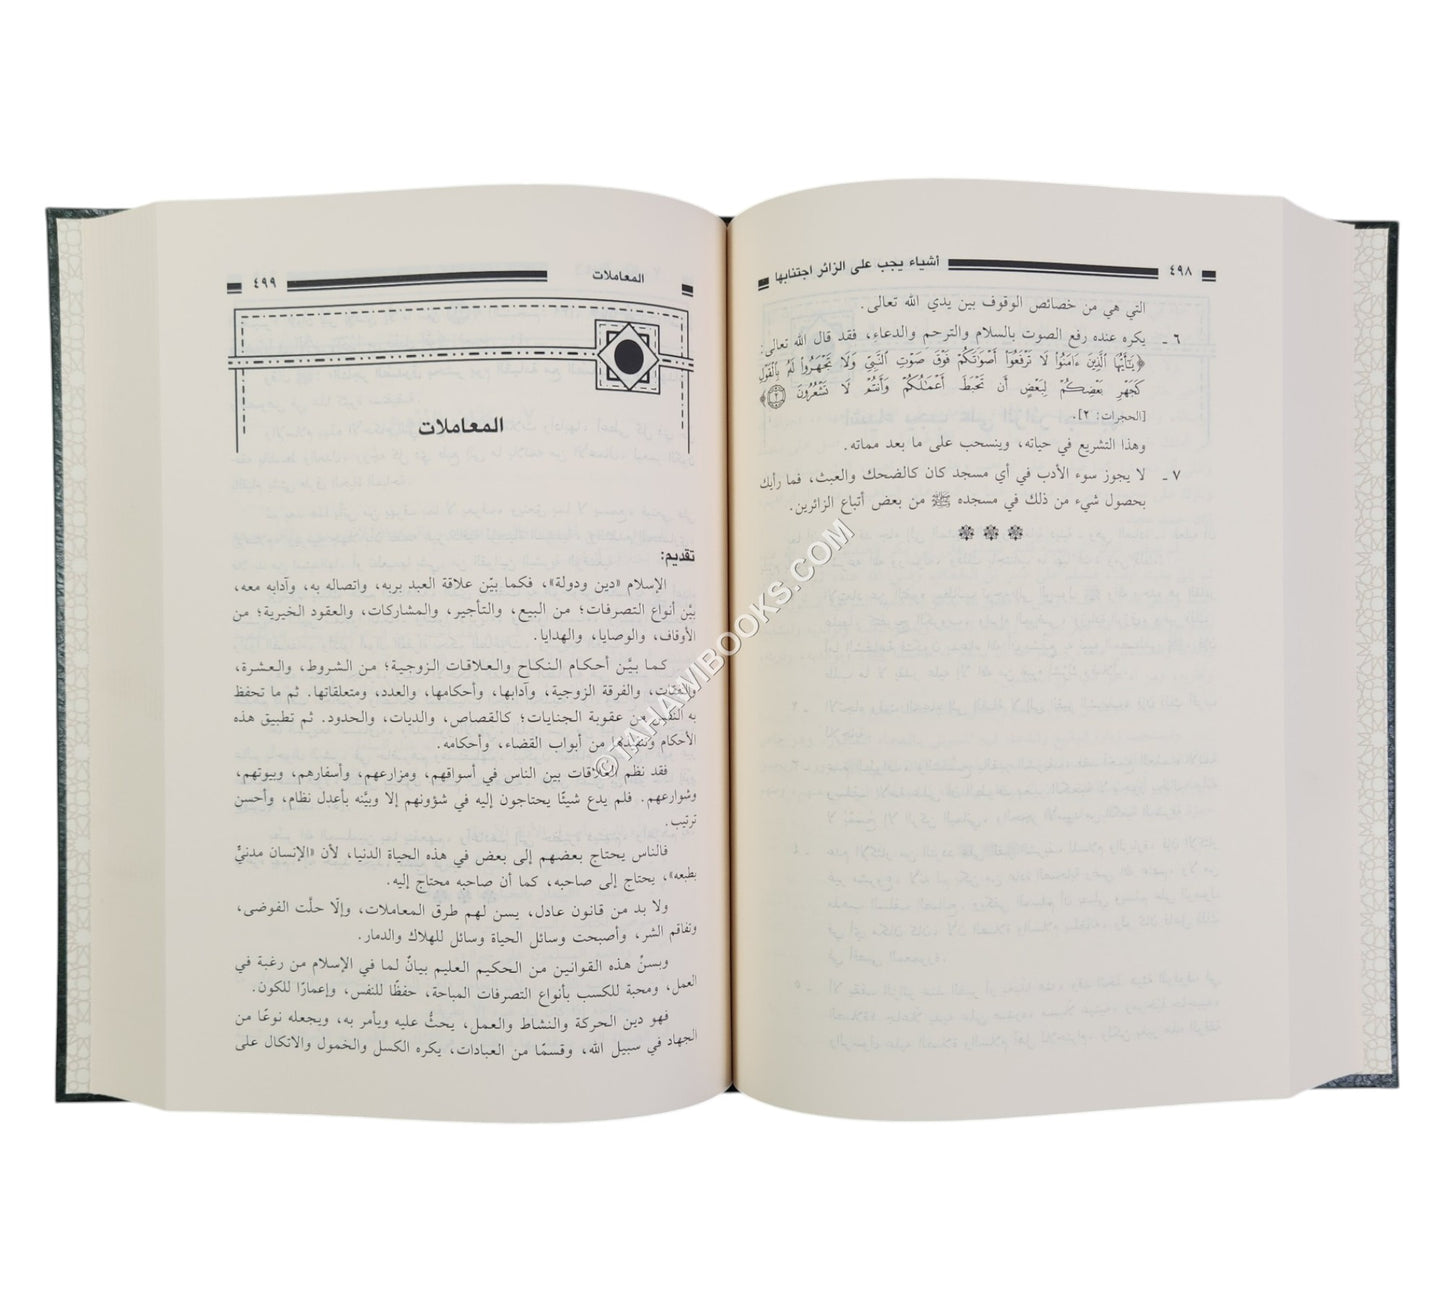 ٤٩٨ أشياء يجب على الزائر اجتنابها
التي هي من خصائص الوقوف بين يدي الله تعالى.
٦ ـ يكره عنده رفع الصوت بالسلام والترحم والدعاء، فقد قال الله تعالى:
﴿يَٰٓأَيُّهَا ٱلَّذِينَ ءَامَنُوا۟ لَا تَرْفَعُوٓا۟ أَصْوَٰتَكُمْ فَوْقَ صَوْتِ ٱلنَّبِيِّ وَلَا تَجْهَرُوا۟ لَهُۥ بِٱلْقَوْلِ
كَجَهْرِ بَعْضِكُمْ لِبَعْضٍ أَن تَحْبَطَ أَعْمَٰلُكُمْ وَأَنتُمْ لَا تَشْعُرُونَ ٢﴾
[الحجرات: ٢].
وهذا التشريع في حياته، وينسحب على ما بعد مماته.
٧ ـ لا يجوز سوء الأدب في أي مسجد كان كالضحك والعبث، فما رأيك
بحصول شيء من ذلك في مسجده ﷺ من بعض أتباع الزائرين.
المعاملات ٤٩٩
المعاملات
تقديم:
الإسلام «دين ودولة»، فكما بيّن علاقة العبد بربه، واتصاله به، وآدابه معه،
بيّن أنواع التصرفات؛ من البيع، والتأجير، والمشاركات، والعقود الخيرية؛ من
الأوقاف، والوصايا، والهدايا.
كما بيَّن أحكام النكاح والعلاقات الزوجية؛ من الشروط، والعشرة،
والنفقات، والفرقة الزوجية، وآدابها، وأحكامها، والعدد، ومتعلقاتها. ثم ما تحفظ
به النفوس من عقوبة الجنايات؛ كالقصاص، والديات، والحدود. ثم تطبيق هذه
الأحكام وتنفيذها من أبواب القضاء، وأحكامه.
فقد نظم العلاقات بين الناس في أسواقهم، ومزارعهم، وأسفارهم، وبيوتهم،
وشوارعهم. فلم يدع شيئًا يحتاجون إليه في شؤونهم إلا وبيَّنه بأعدل نظام، وأحسن
ترتيب.
فالناس يحتاج بعضهم إلى بعض في هذه الحياة الدنيا، لأن «الإنسان مدنيٌّ
بطبعه»، يحتاج إلى صاحبه، كما أن صاحبه محتاج إليه.
ولا بد من قانون عادل، يسن لهم طرق المعاملات، وإلّا حلَّت الفوضى،
وتفاقم الشر، وأصبحت وسائل الحياة وسائل للهلاك والدمار.
وبسنِّ هذه القوانين من الحكيم العليم بيانٌ لما في الإسلام من رغبة في
العمل، ومحبة للكسب بأنواع التصرفات المباحة، حفظًا للنفس، وإعمارًا للكون.
فهو دين الحركة والنشاط والعمل، يحثُّ عليه ويأمر به، ويجعله نوعًا من
الجهاد في سبيل الله، وقسمًا من العبادات، يكره الكسل والخمول والاتكال على
©TAHAMIBOOKS.COM